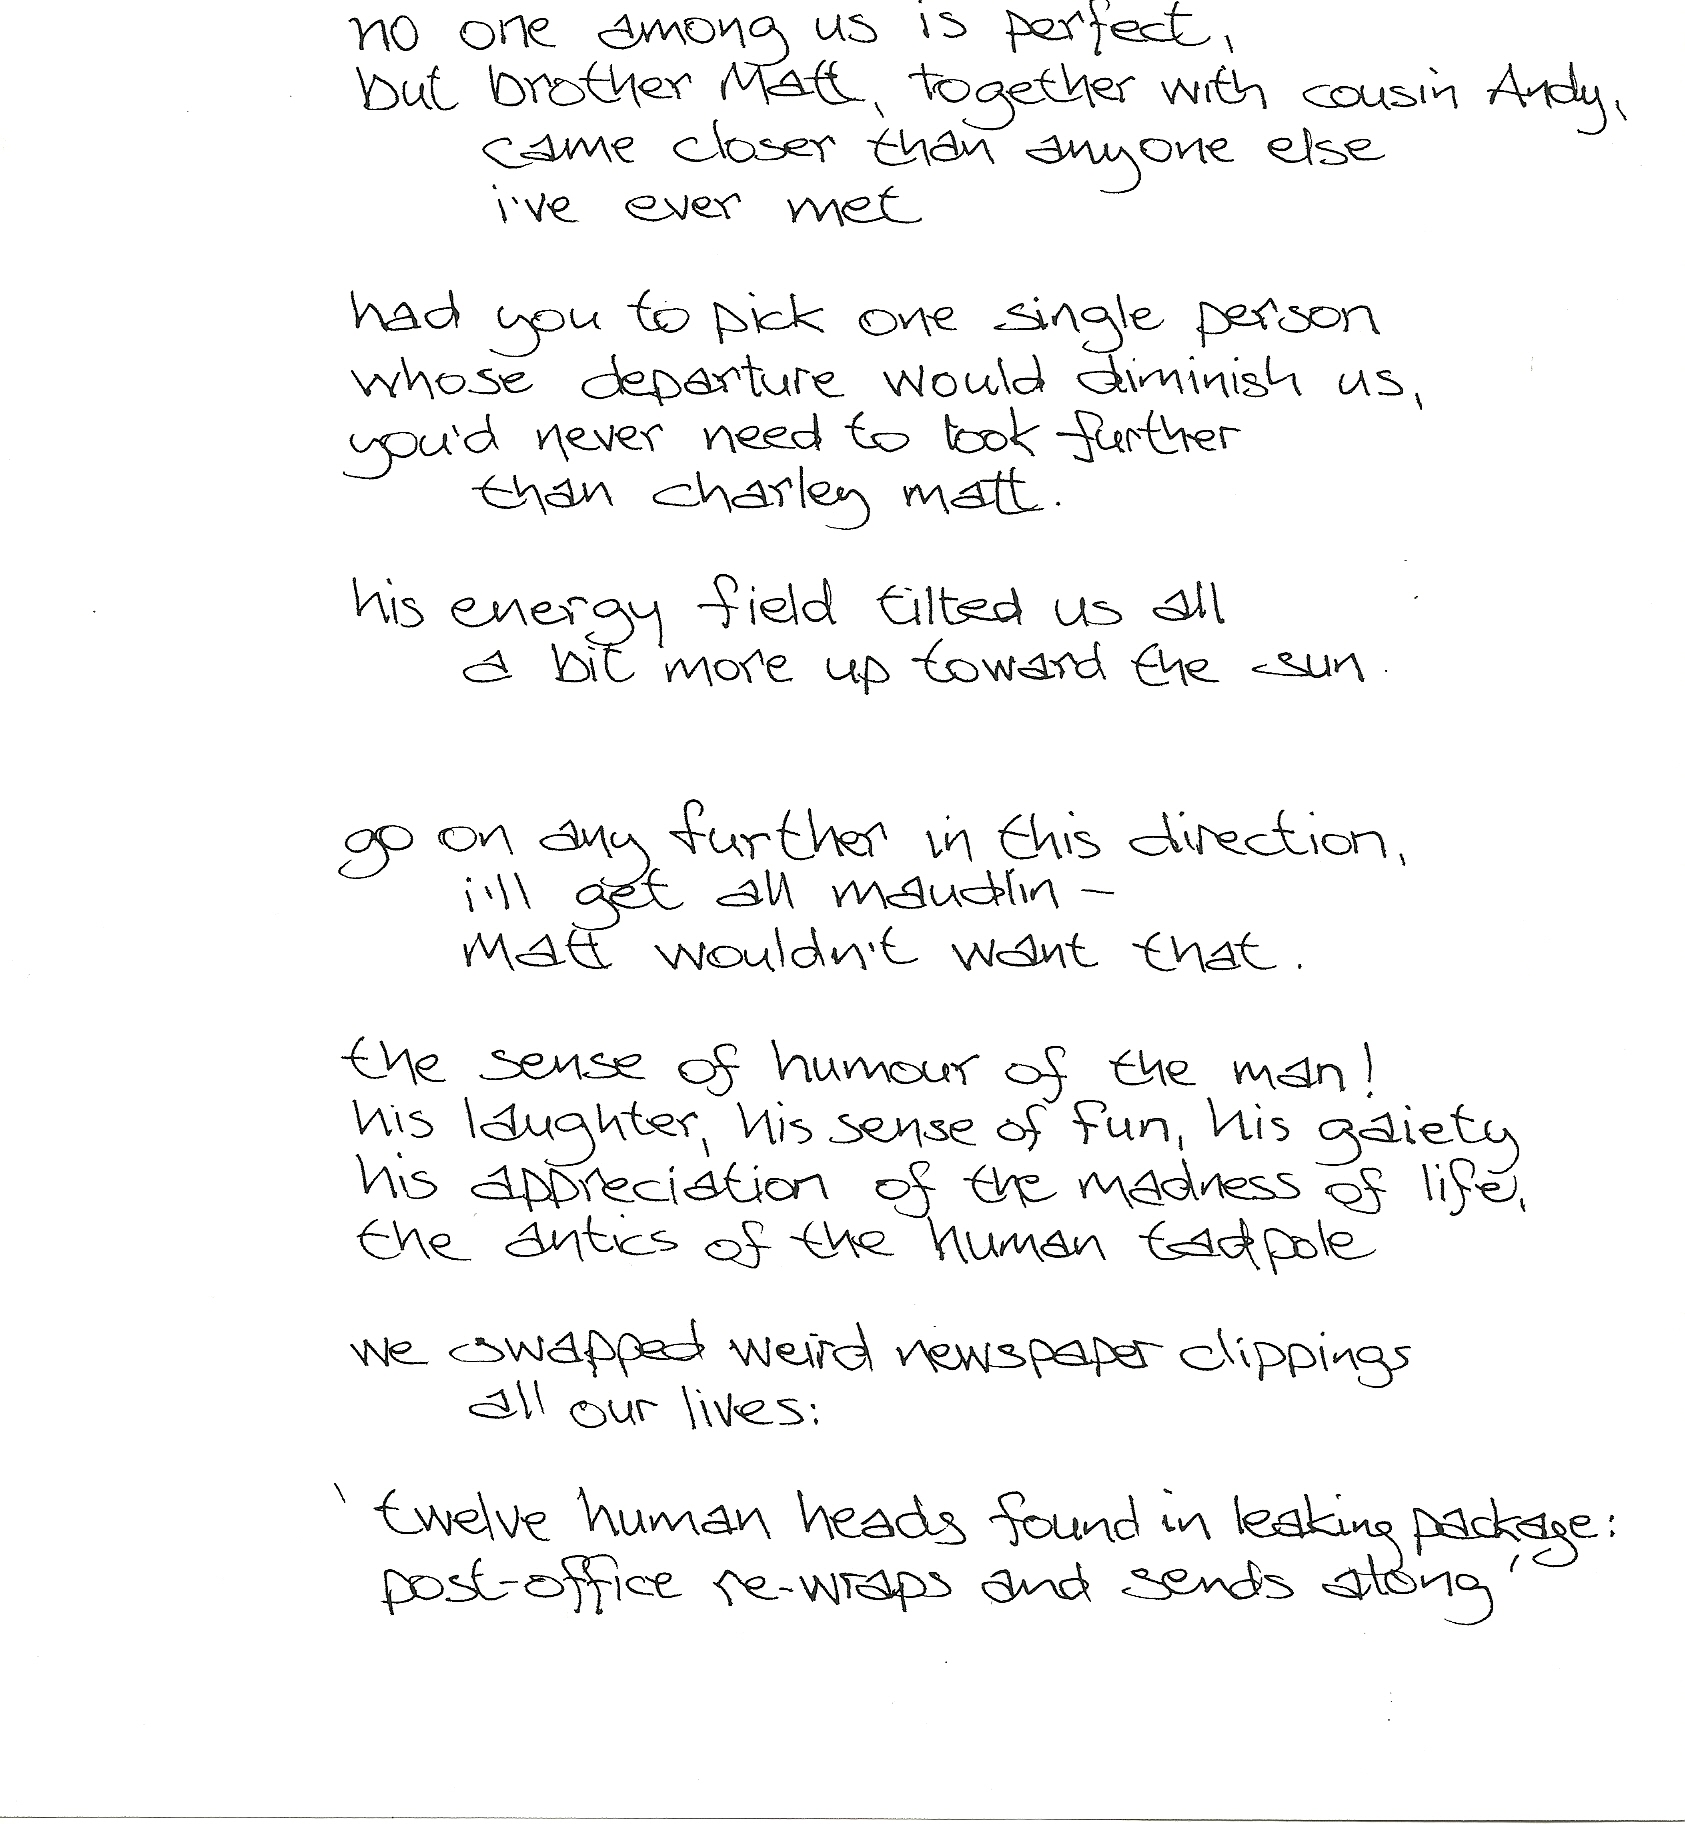 no one among us is perfect,
but brother Matt, together with cousin Andy,
came closer than anyone else
i've ever met
had you to pick one single person
whose departure would diminish us,
you'd never need to look further
than charley matt.
his energy field tilted us all
a bit more up toward the sun.
go on any further in this direction,
i'll get all maudlin –
Matt wouldn't want that.
the sense of humour of the man!
his laughter, his sense of fun, his gaiety
his appreciation of the madness of life,
the antics of the human tadpole
we swapped weird newspaper clippings
all our lives:
'twelve human heads found in leaking package:
post-office re-wraps and sends along'